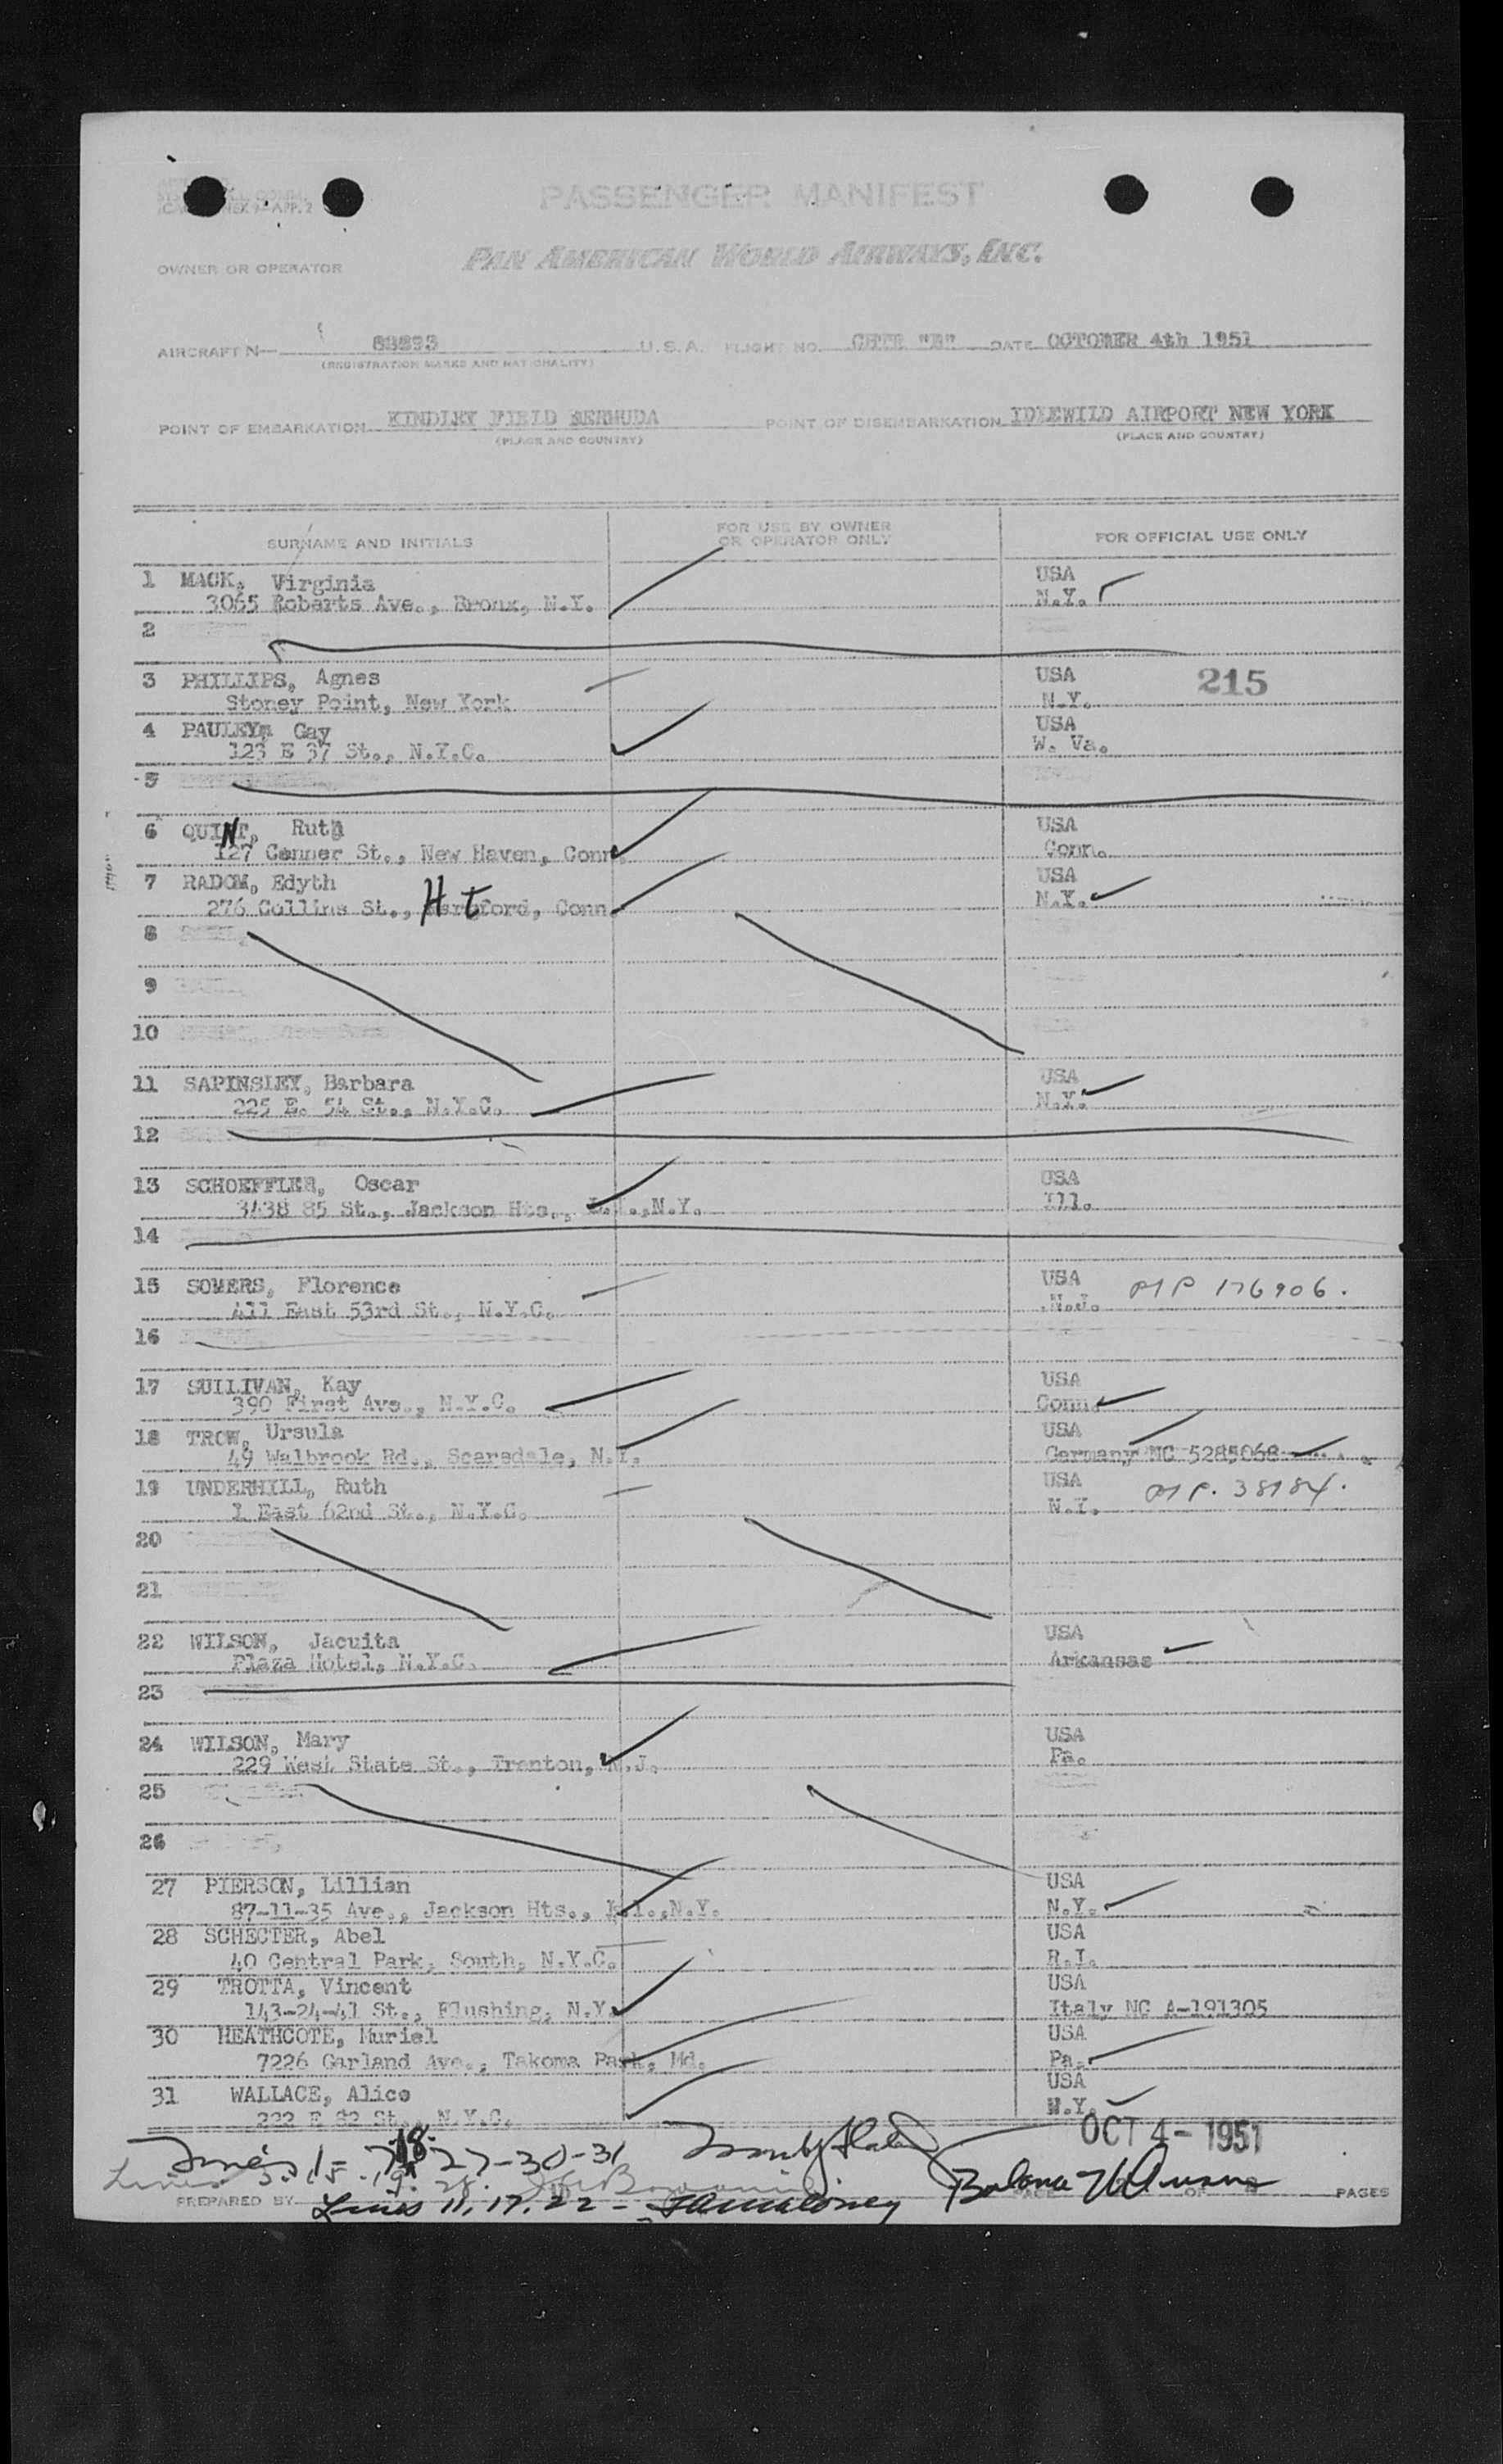 PASSENGER MANIFEST
PAN AMERICAN WORLD AIRWAYS, INC.
OWNER OR OPERATOR
AIRCRAFT N— 88893 U.S.A. FLIGHT NO. CHTR "B" DATE OCTOBER 4th 1951
(REGISTRATION MARKS AND NATIONALITY)
POINT OF EMBARKATION KINDLEY FIELD BERMUDA POINT OF DISEMBARKATION IDLEWILD AIRPORT NEW YORK
(PLACE AND COUNTRY) (PLACE AND COUNTRY)
SURNAME AND INITIALS FOR USE BY OWNER OR OPERATOR ONLY FOR OFFICIAL USE ONLY
1 MACK, Virginia USA
3065 Roberts Ave., Bronx, N.Y. N.Y.
2
3 PHILLIPS, Agnes USA 215
Stoney Point, New York N.Y.
4 PAULEY, Gay USA
123 E 37 St., N.Y.C. W. Va.
5
6 QUINT, Ruth USA
127 Conner St., New Haven, Conn. Conn.
7 RADOM, Edyth USA
276 Collins St., Hartford, Conn. N.Y.
8
9
10
11 SAPINSLEY, Barbara USA
225 E. 54 St., N.Y.C. N.Y.
12
13 SCHOEFFLER, Oscar USA
3438 85 St., Jackson Hts., L.I.,N.Y. Ill.
14
15 SOMERS, Florence USA PIP 176906.
411 East 53rd St., N.Y.C. N.J.
16
17 SULLIVAN, Kay USA
390 First Ave., N.Y.C. Conn.
18 TROW, Ursula USA
49 Walbrook Rd., Scarsdale, N.Y. Germany NC 5285068
19 UNDERHILL, Ruth USA PIP. 38184.
1 East 62nd St., N.Y.C. N.Y.
20
21
22 WILSON, Jacuita USA
Plaza Hotel, N.Y.C. Arkansas
23
24 WILSON, Mary USA
229 West State St., Trenton, N.J. Pa.
25
26
27 PIERSON, Lillian USA
87-11-35 Ave., Jackson Hts., L.I.,N.Y. N.Y.
28 SCHECTER, Abel USA
40 Central Park, South, N.Y.C. R.I.
29 TROTTA, Vincent USA
143-24-41 St., Flushing, N.Y. Italy NC A-191305
30 HEATHCOTE, Muriel USA
7226 Garland Ave., Takoma Park, Md. Pa.
31 WALLACE, Alice USA
222 E 82 St., N.Y.C. N.Y.
OCT 4 - 1951
Lines 1-7-18-27-30-31
Lines 3. 15. 19. 28.
PREPARED BY Lines 11, 17, 22 - PAGE OF PAGES